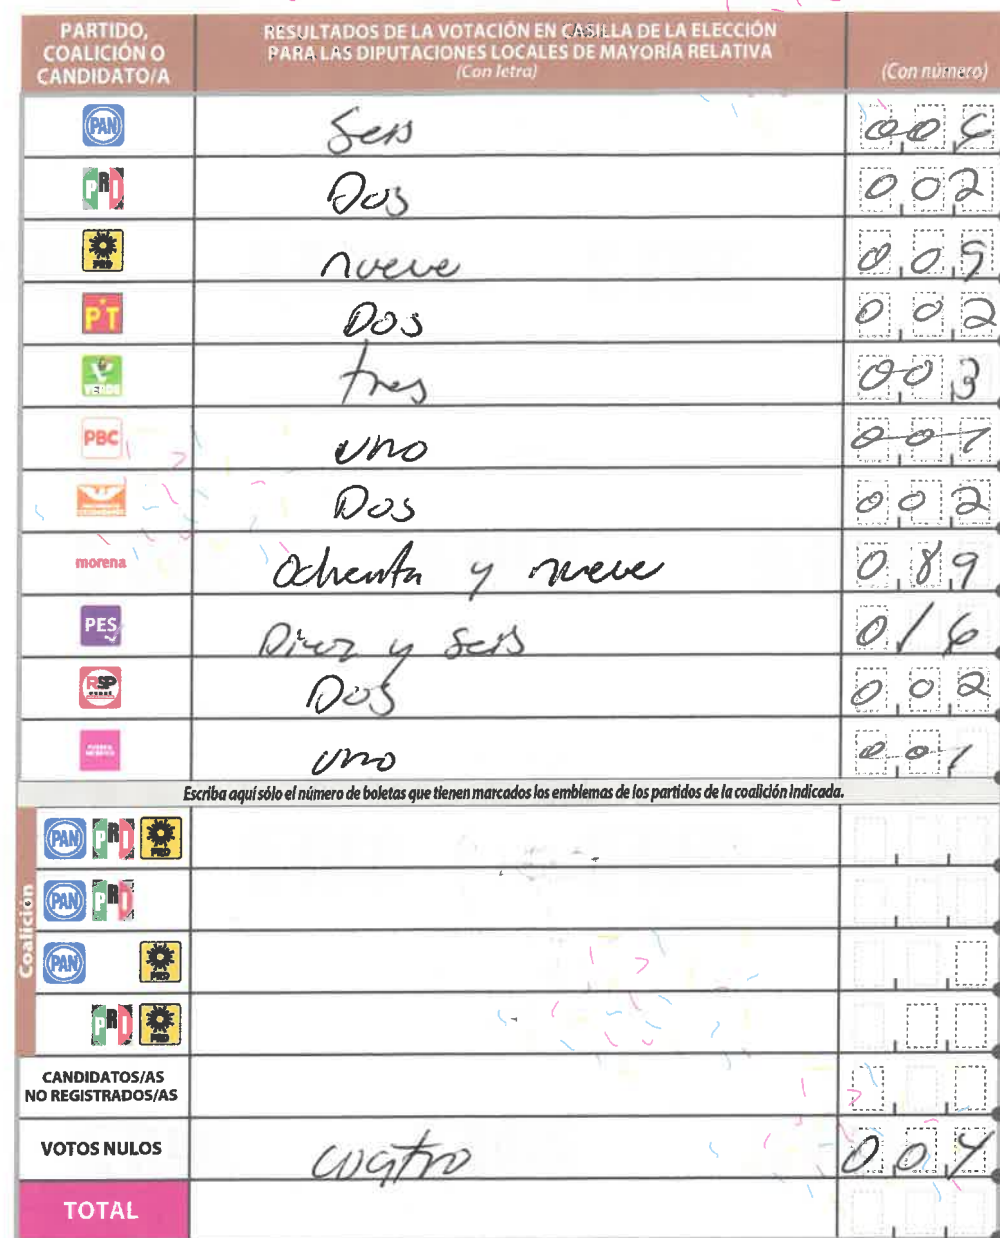 PARTIDO, COALICIÓN O CANDIDATO/A
RESULTADOS DE LA VOTACIÓN EN CASILLA DE LA ELECCIÓN
PARA LAS DIPUTACIONES LOCALES DE MAYORÍA RELATIVA
(Con letra)
(Con número)
PAN Seis 006
PRI Dos 002
PRD nueve 009
PT Dos 002
VERDE tres 003
PBC uno 001
Dos 002
morena Ochenta y nueve 089
PES Diez y Seis 016
RSP Dos 002
uno 001
Escriba aquí sólo el número de boletas que tienen marcados los emblemas de los partidos de la coalición indicada.
Coalición
PAN PRI PRD
PAN PRI
PAN PRD
PRI PRD
CANDIDATOS/AS
NO REGISTRADOS/AS
VOTOS NULOS cuatro 004
TOTAL